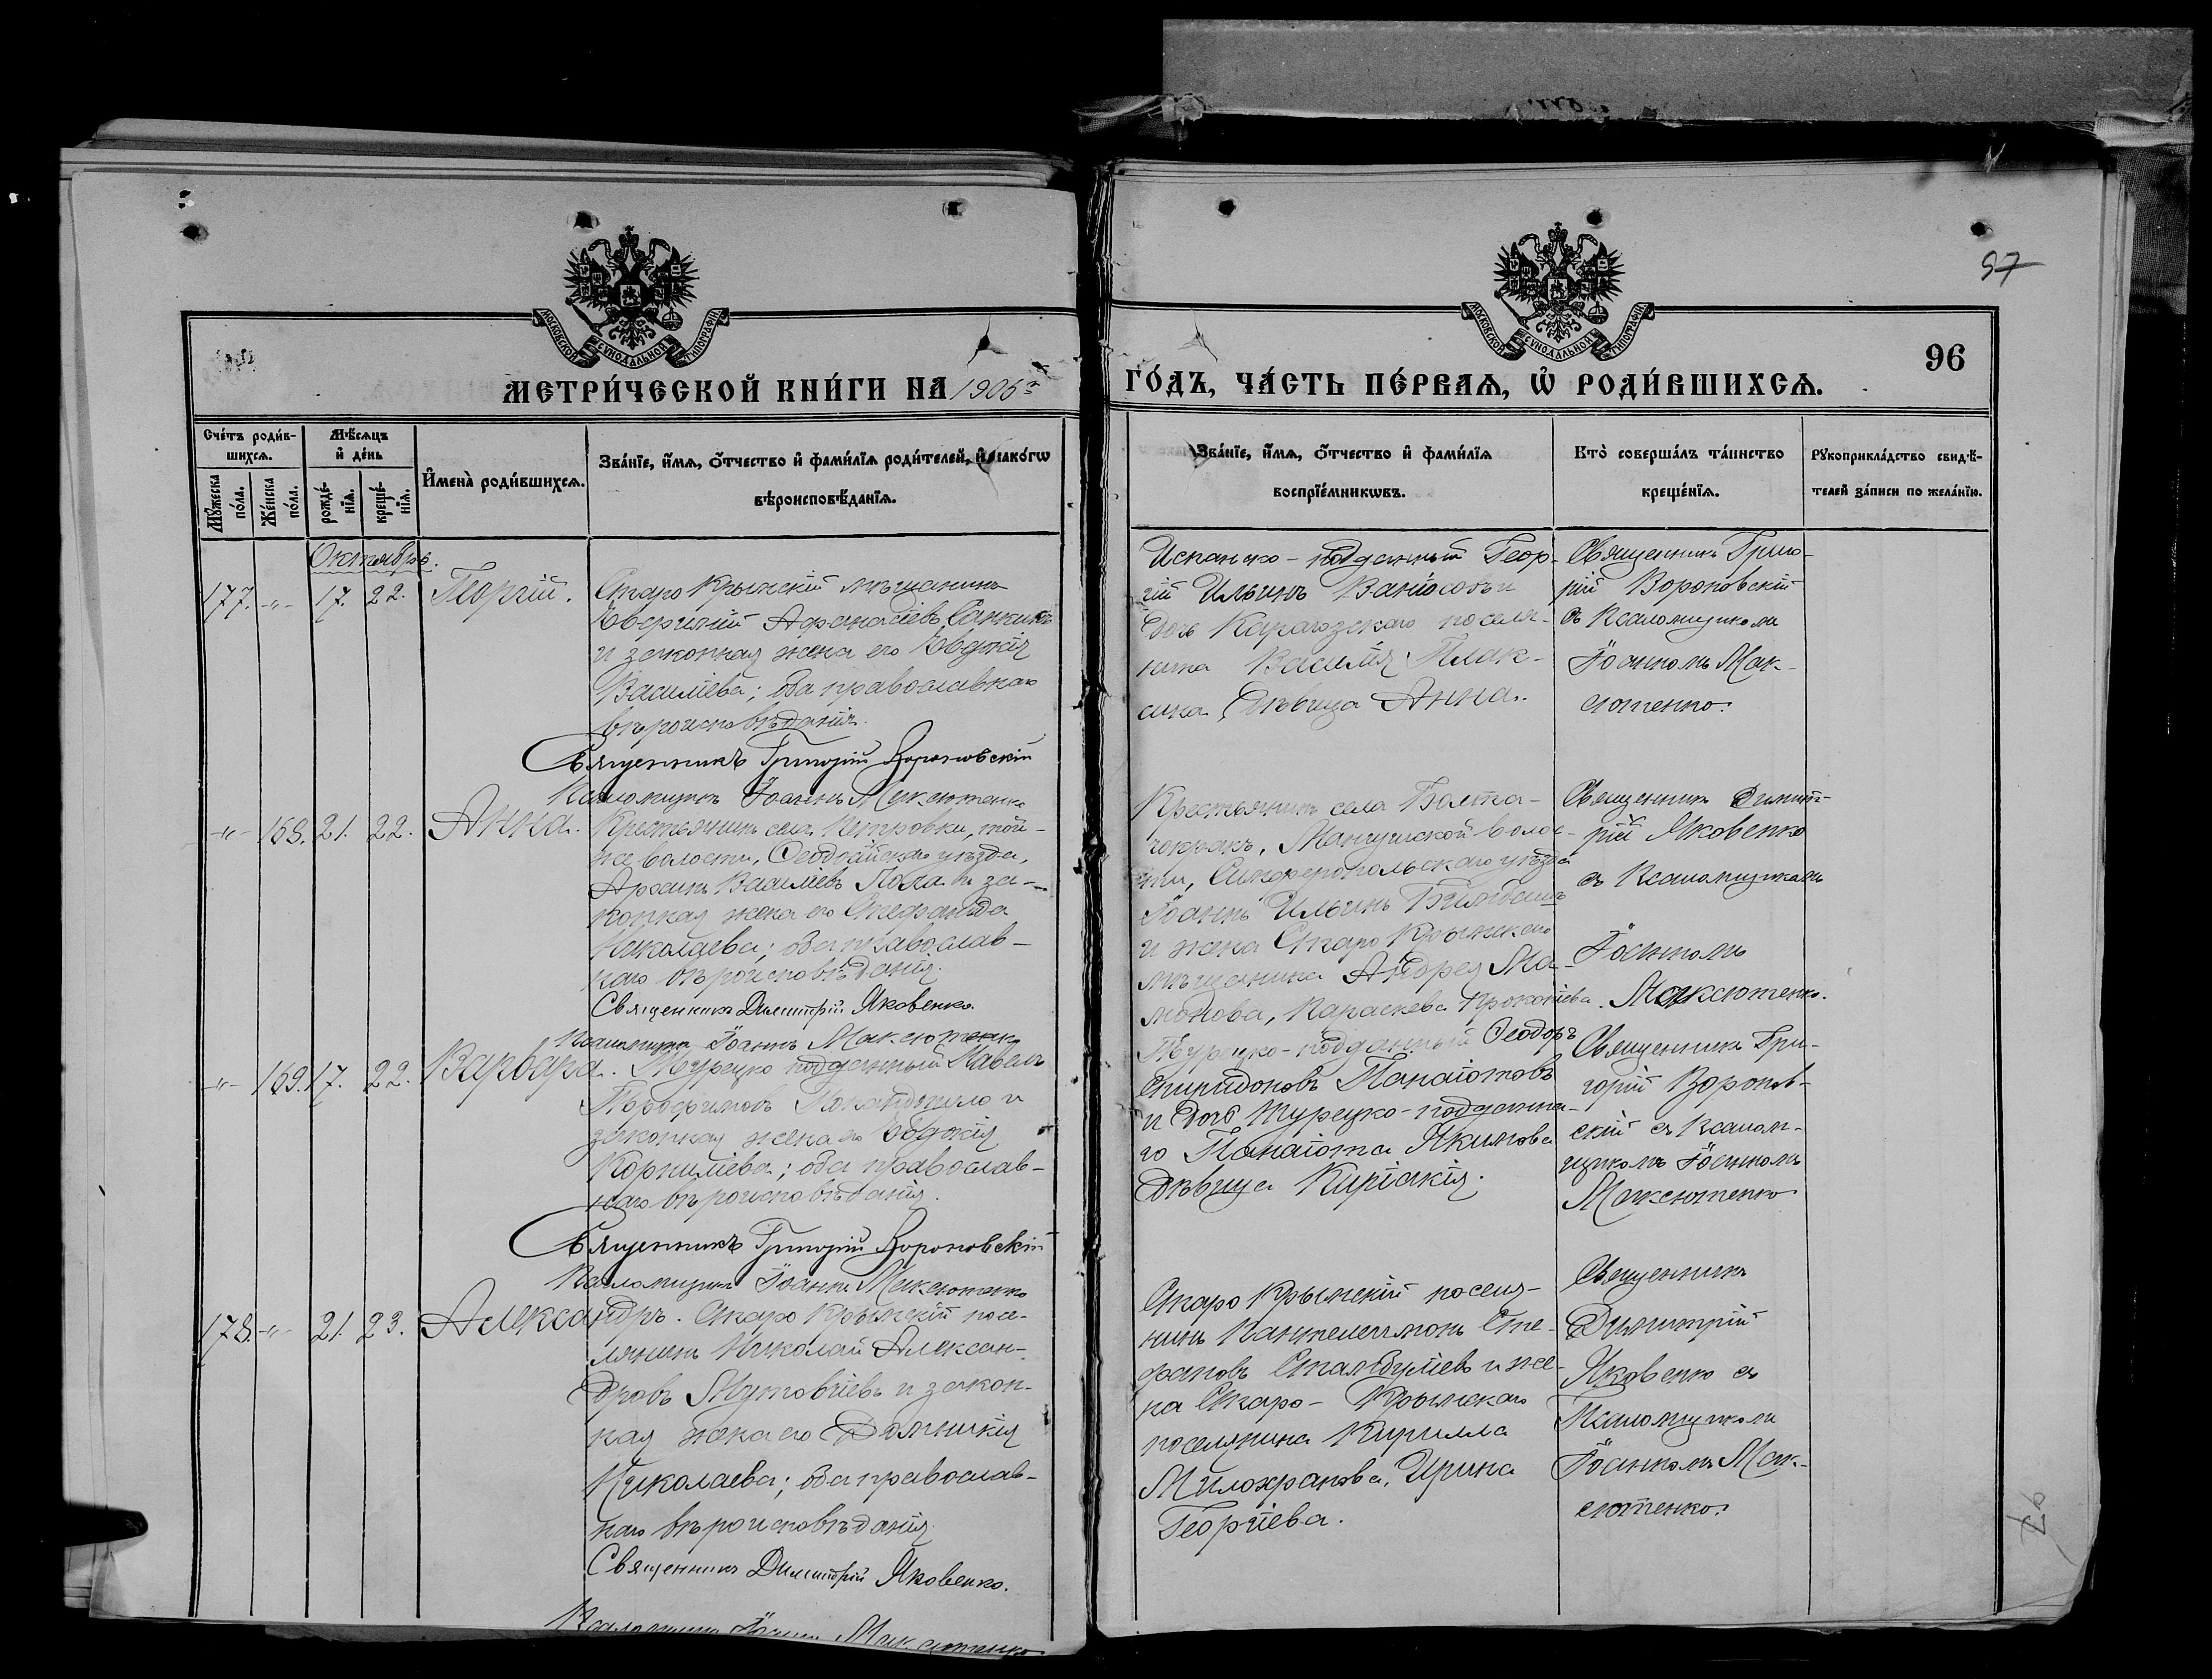 97
96
МОСКОВСКОЙ СѴНОДАЛЬНОЙ ТИПОГРАФІИ
МОСКОВСКОЙ СѴНОДАЛЬНОЙ ТИПОГРАФІИ
МЕТРИ́ЧЕСКОЙ КНИ́ГИ НА 1905 г
ГО́ДЪ, ЧА́СТЬ ПЕ́РВАѦ, Ѡ҆ РОДИ́ВШИХСѦ.
Сче́тъ роди́в-
шихсѧ.
Мꙋ́жеска по́ла.
Же́нска по́ла.
Мѣ́сѧцъ и҆ де́нь
рожде́-нїѧ.
креще́-нїѧ.
И҆мена̀ роди́вшихсѧ.
Зва́нїе, и҆́мѧ, ѻ҆́тчество и҆ фами́лїѧ роди́телей, и҆ како́гѡ
вѣроисповѣ́данїѧ.
Зва́нїе, и҆́мѧ, ѻ҆́тчество и҆ фами́лїѧ
воспрїе́мникѡвъ.
Кто̀ соверша́лъ та́инство
креще́нїѧ.
Рꙋкоприкла́дство свидѣ́-
телей за́писи по жела́нїю.
Октябрь.
177. -"- 17. 22. Георгій.
Старо Крымскій мѣщанинъ
Евфимій Афанасіевъ
и законная жена его Евдокія
Василіева; оба православнаго
вѣроисповѣданія.
Священникъ Григорій Вороновскій
Псаломщикъ Іоаннъ Максютенко
Испанско-подданный Геор-
гій Ильинъ и
дочь Карагозскаго поселя-
нина Василія Плак-
сина, дѣвица Анна.
Священникъ Григо-
рій Вороновскій
съ Псаломщикомъ
Іоанномъ Мак-
сютенко.
-"- 168. 21. 22. Анна.
Крестьянинъ села Петровки, той-
же волости, Ѳеодосійскаго уѣзда,
Василіевъ и за-
конная жена его Стефанида
Николаева; оба православ-
наго вѣроисповѣданія.
Священникъ Димитрій Яковенко.
Псаломщикъ Іоаннъ Максютенко
Крестьянинъ села Балта-
чокракъ, Мангушской волос-
ти, Симферопольскаго уѣзда
Іоаннъ Ильинъ
и жена Старо Крымскаго
мѣщанина Андрея Ма-
монова, Параскева Прокопіева.
Священникъ Димит-
рій Яковенко
съ Псаломщикомъ
Іоанномъ
Максютенко.
-"- 169. 17. 22. Варвара.
Турецко подданный Павелъ
и
законная жена его Евдокія
Корниліева; оба православ-
наго вѣроисповѣданія.
Священникъ Григорій Вороновскій
Псаломщикъ Іоаннъ Максютенко
Турецко-подданный Ѳеодоръ
Спиридоновъ Панаіотовъ
и дочь Турецко-подданна-
го Панаіота Якимова
дѣвица Киріакія.
Священникъ Гри-
горій Воронов-
скій съ Псалом-
щикомъ Іоанномъ
Максютенко
178. -"- 21. 23. Александръ.
Старо Крымскій посе-
лянинъ Николай Алексан-
дровъ и закон-
ная жена его Домникія
Николаева; оба православ-
наго вѣроисповѣданія.
Священникъ Димитрій Яковенко.
Псаломщикъ Іоаннъ Максютенко
Старо Крымскій поселя-
нинъ Пантелеимонъ Сте-
фановъ и же-
на Старо-Крымскаго
поселянина Кирилла
Милохранова, Ирина
Георгіева.
Священникъ
Димитрій
Яковенко съ
Псаломщикомъ
Іоанномъ Мак-
сютенко.